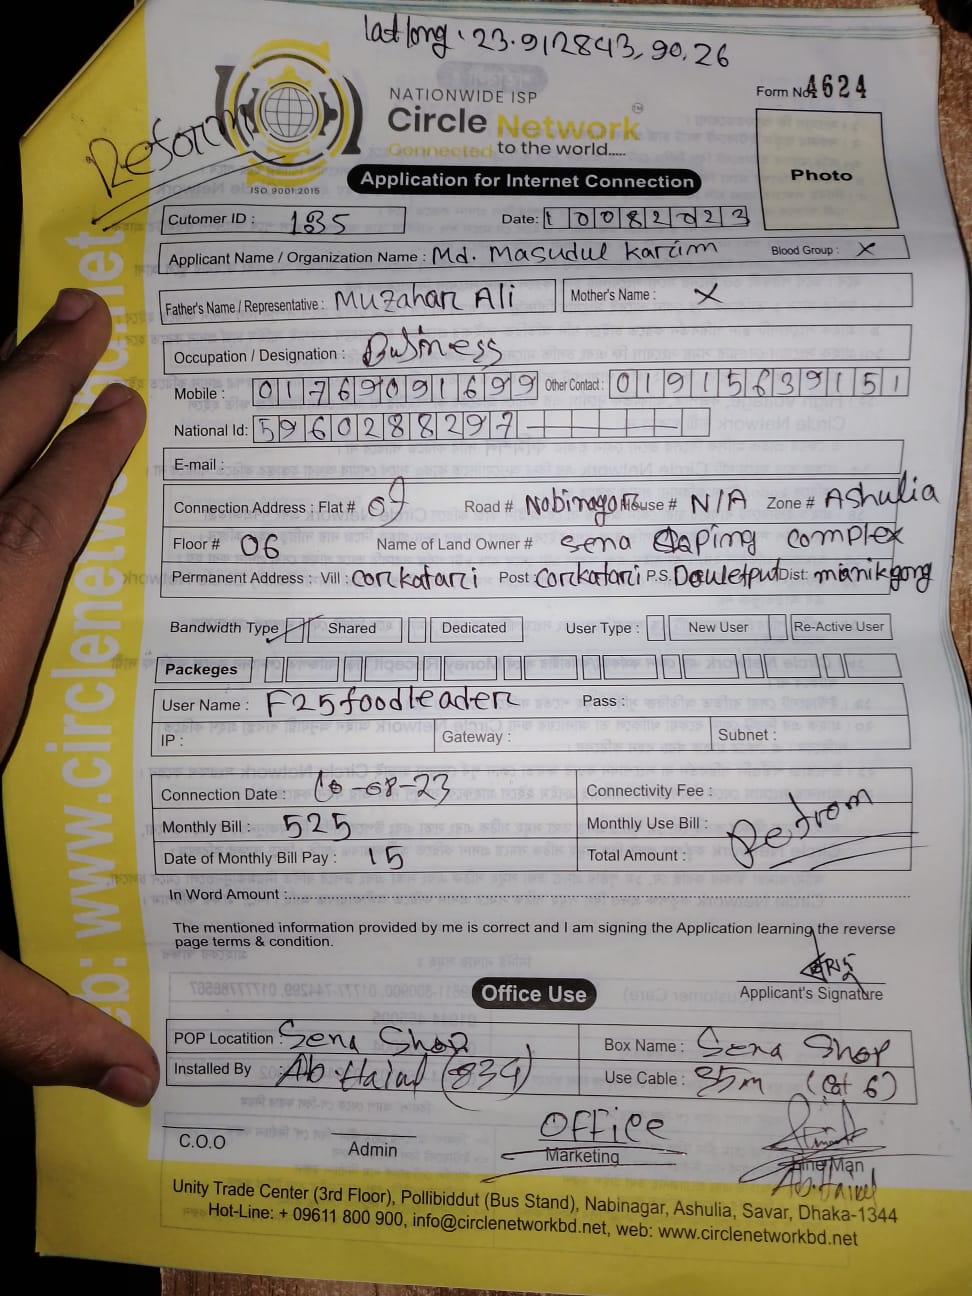 lat long : 23.912843, 90.26
NATIONWIDE ISP
Circle Network
Connected to the world.....
ISO 9001:2015
Form No. 4624
Photo
Reform
Application for Internet Connection
Cutomer ID : 185
Date: 10082023
Applicant Name / Organization Name : Md. Masudul Karim Blood Group : X
Father's Name / Representative : Muzahar Ali Mother's Name : X
Occupation / Designation : Business
Mobile : 01769091699 Other Contact : 01915639151
National Id: 5960288297
E-mail :
Connection Address : Flat # Road # Nobinagor House # N/A Zone # Ashulia
Floor # 06 Name of Land Owner # Sena Saping complex
Permanent Address : Vill : corkatari Post : corkatari P.S. Douletput Dist: manikgong
Bandwidth Type Shared Dedicated User Type : New User Re-Active User
Packeges
User Name : F25foodleader Pass :
IP : Gateway : Subnet :
Connection Date : 10-08-23 Connectivity Fee :
Monthly Bill : 525 Monthly Use Bill :
Refrom
Date of Monthly Bill Pay : 15 Total Amount :
In Word Amount :
The mentioned information provided by me is correct and I am signing the Application learning the reverse
page terms & condition.
Applicant's Signature
Office Use
POP Locatition : Sena Shop Box Name : Sena Shop
Installed By : Ab. Halal (834) Use Cable : 35m (Cat 6)
C.O.O Admin OFFice Marketing Line Man
Unity Trade Center (3rd Floor), Pollibiddut (Bus Stand), Nabinagar, Ashulia, Savar, Dhaka-1344
Hot-Line: + 09611 800 900, info@circlenetworkbd.net, web: www.circlenetworkbd.net